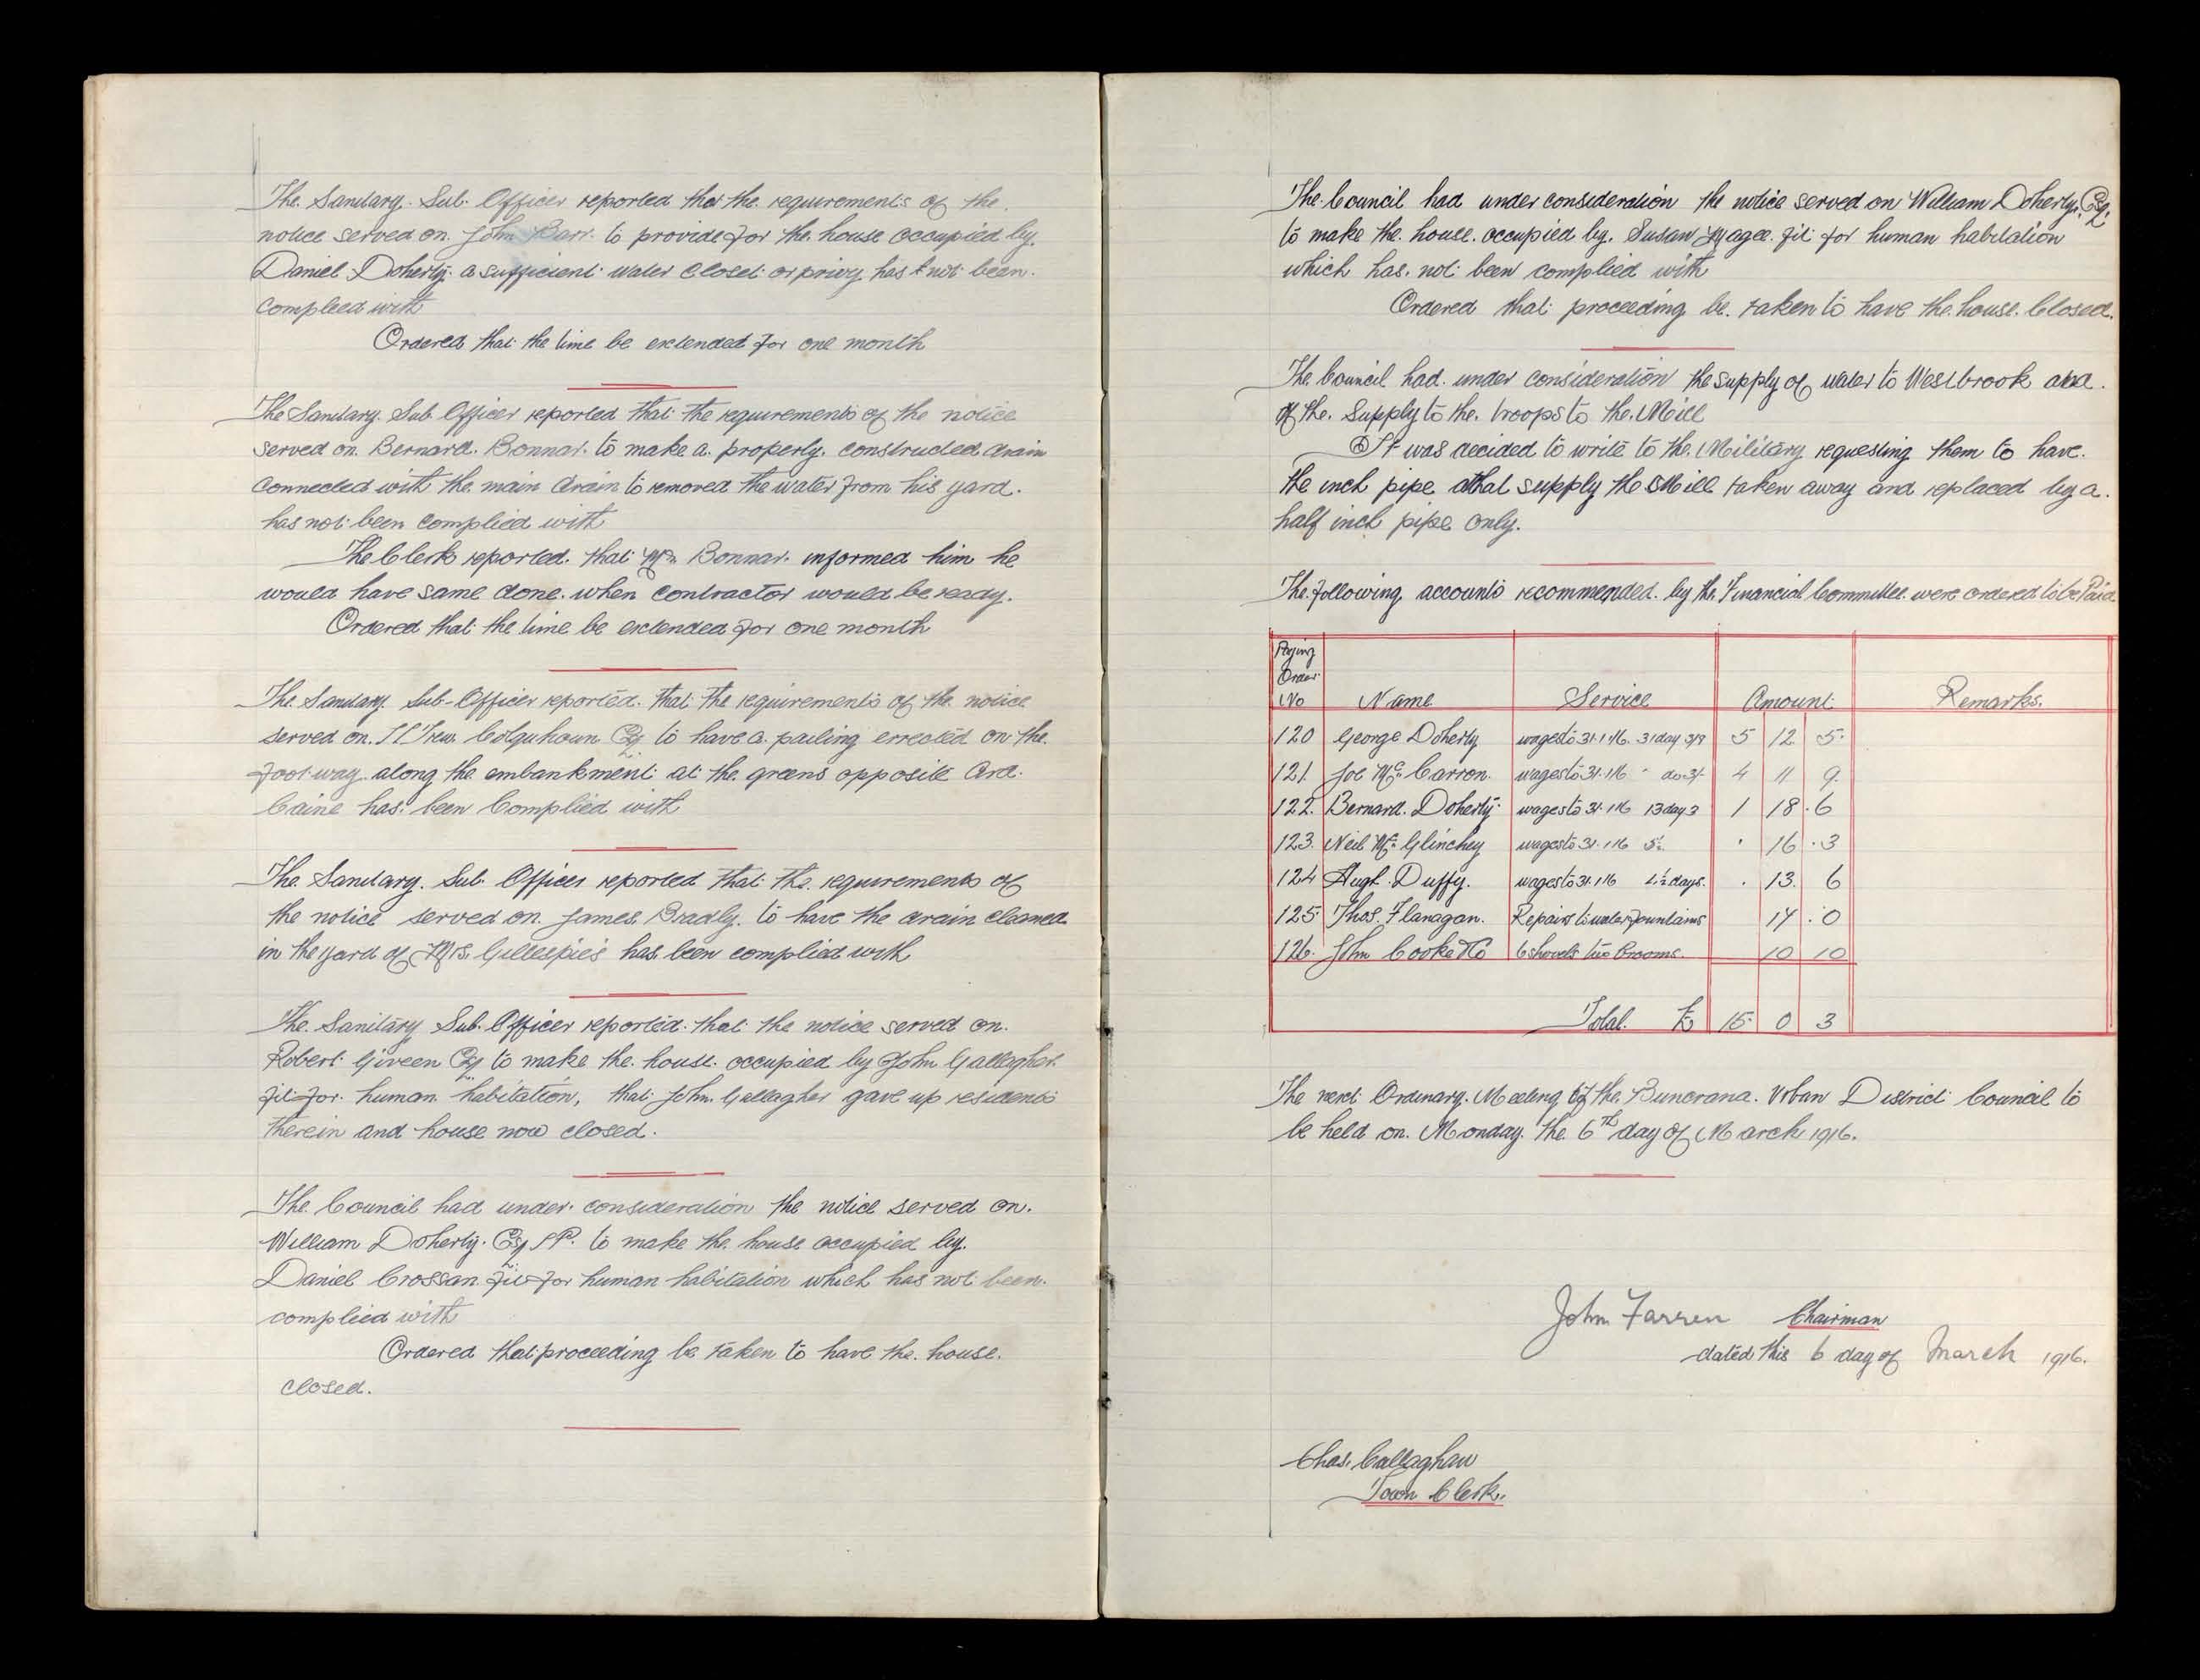 The Sanitary Sub. Officer reported that the requirements of the
notice served on John Barr to provide for the house occupied by
Daniel Doherty a sufficient water closet or privy has not been
complied with
Ordered that the time be extended for one month
The Sanitary Sub Officer reported that the requirements of the notice
served on Bernard Bonnar to make a properly constructed drain
connected with the main drain to removed the water from his yard
has not been complied with
The Clerk reported that Mr Bonnar informed him he
would have same done when contractor would be ready.
Ordered that the time be extended for one month
The Sanitary Sub-Officer reported that the requirements of the notice
served on Colquhoun Esq to have a pailing errected on the
footway along the embankment at the greens opposite Ard
Caine has been Complied with
The Sanitary Sub. Officer reported that the requirements of
the notice served on James Bradly to have the drain cleaned
in the yard of Mrs Gillespie's has been complied with
The Sanitary Sub. Officer reported that the notice served on
Robert Giveen Esq to make the house occupied by John Gallagher
fit for human habitation, that John Gallagher gave up residents
therein and house now closed.
The Council had under consideration the notice served on
William Doherty Esq JP. to make the house occupied by
Daniel Crossan fit for human habitation which has not been
complied with
Ordered that proceeding be taken to have the house
closed.
The Council had under consideration the notice served on William Doherty Esq.
to make the house occupied by Susan Magee fit for human habitation
which has not been complied with
Ordered that proceeding be taken to have the house Closed.
The Council had under consideration the supply of water to Westbrook and
of the Supply to the troops to the Mill
It was decided to write to the Military requesting them to have
the inch pipe that supply the Mill taken away and replaced by a
half inch pipe only.
The following accounts recommended by the Financial Committee were ordered to be Paid
Paying
Order
No Name Service Amount Remarks.
120 George Doherty wages to 31.1.16. 31 day 3/7 5 12 5
121. Joe McCarron. wages to 31.1.16 " do 3/- 4 11 9
122. Bernard Doherty wages to 31.1.16 13 day 3 1 18 6
123. Neil McGlinchey wages to 31.1.16 16 3
124 Hugh Duffy. wages to 31.1.16 4½ days. 13 6
125 Thos. Flanagan. Repairs to water fountains 17 0
126. John Cooke & Co 6 shovels two Brooms. 10 10
Total £ 15 0 3
The next Ordinary Meeting of the Buncrana Urban District Council to
be held on Monday the 6th day of March 1916.
John Farren Chairman
dated this 6 day of March 1916.
Chas. Callaghan
Town Clerk.